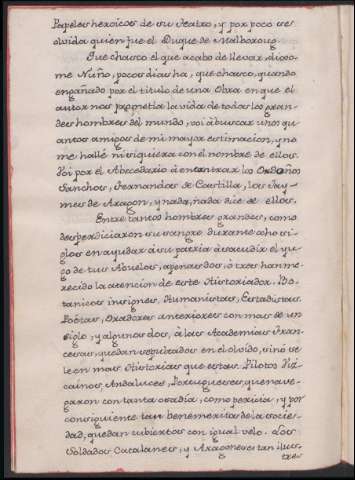 Papeles heroicos de su Teatro, y por poco se
olvida quien fue el Duque de Malboroug
Que chasco el que acabo de llevar dixo-
me Nuño, pocos dias ha, que chasco, quando
engañado por el titulo de una Obra en que el
autor nos prometia la vida de todos los gran-
des hombres del mundo, voi à buscar unos qu-
antos amigos de mi mayor estimacion, y no
me hallé ni siquiera con el nombre de ellos.
Voi por el Abecedario à encontrar los Ordoños
Sanchos, Fernandos de Castilla, los Jay-
mes de Aragon, y nada, nada dice de ellos.
Entre tantos hombres grandes, como
desperdiciaron su sangre durante ocho si-
glos en ayudar à su patria à sacudir el yu-
go de tus Abuelos, apenas dos, ò tres han me-
recido la atencion de este Historiador. Bo-
tanicos insignes, Humanistas, Estadistas,
Poëtas, Oradores anteriores con mas de un
siglo, y algunos dos, à las Academias Fran-
cesas, quedan sepultados en el olvido, si no se
leen mas Historias que estas. Pilotos Viz-
cainos, Andaluces, Portugueses, que nave-
garon con tanta osadia, como pericia, y por
consiguiente tan benemeritos de la socie-
dad, quedan cubiertos con igual velo. Los
Soldados Catalanes, y Aragoneses tan ilus-
tres